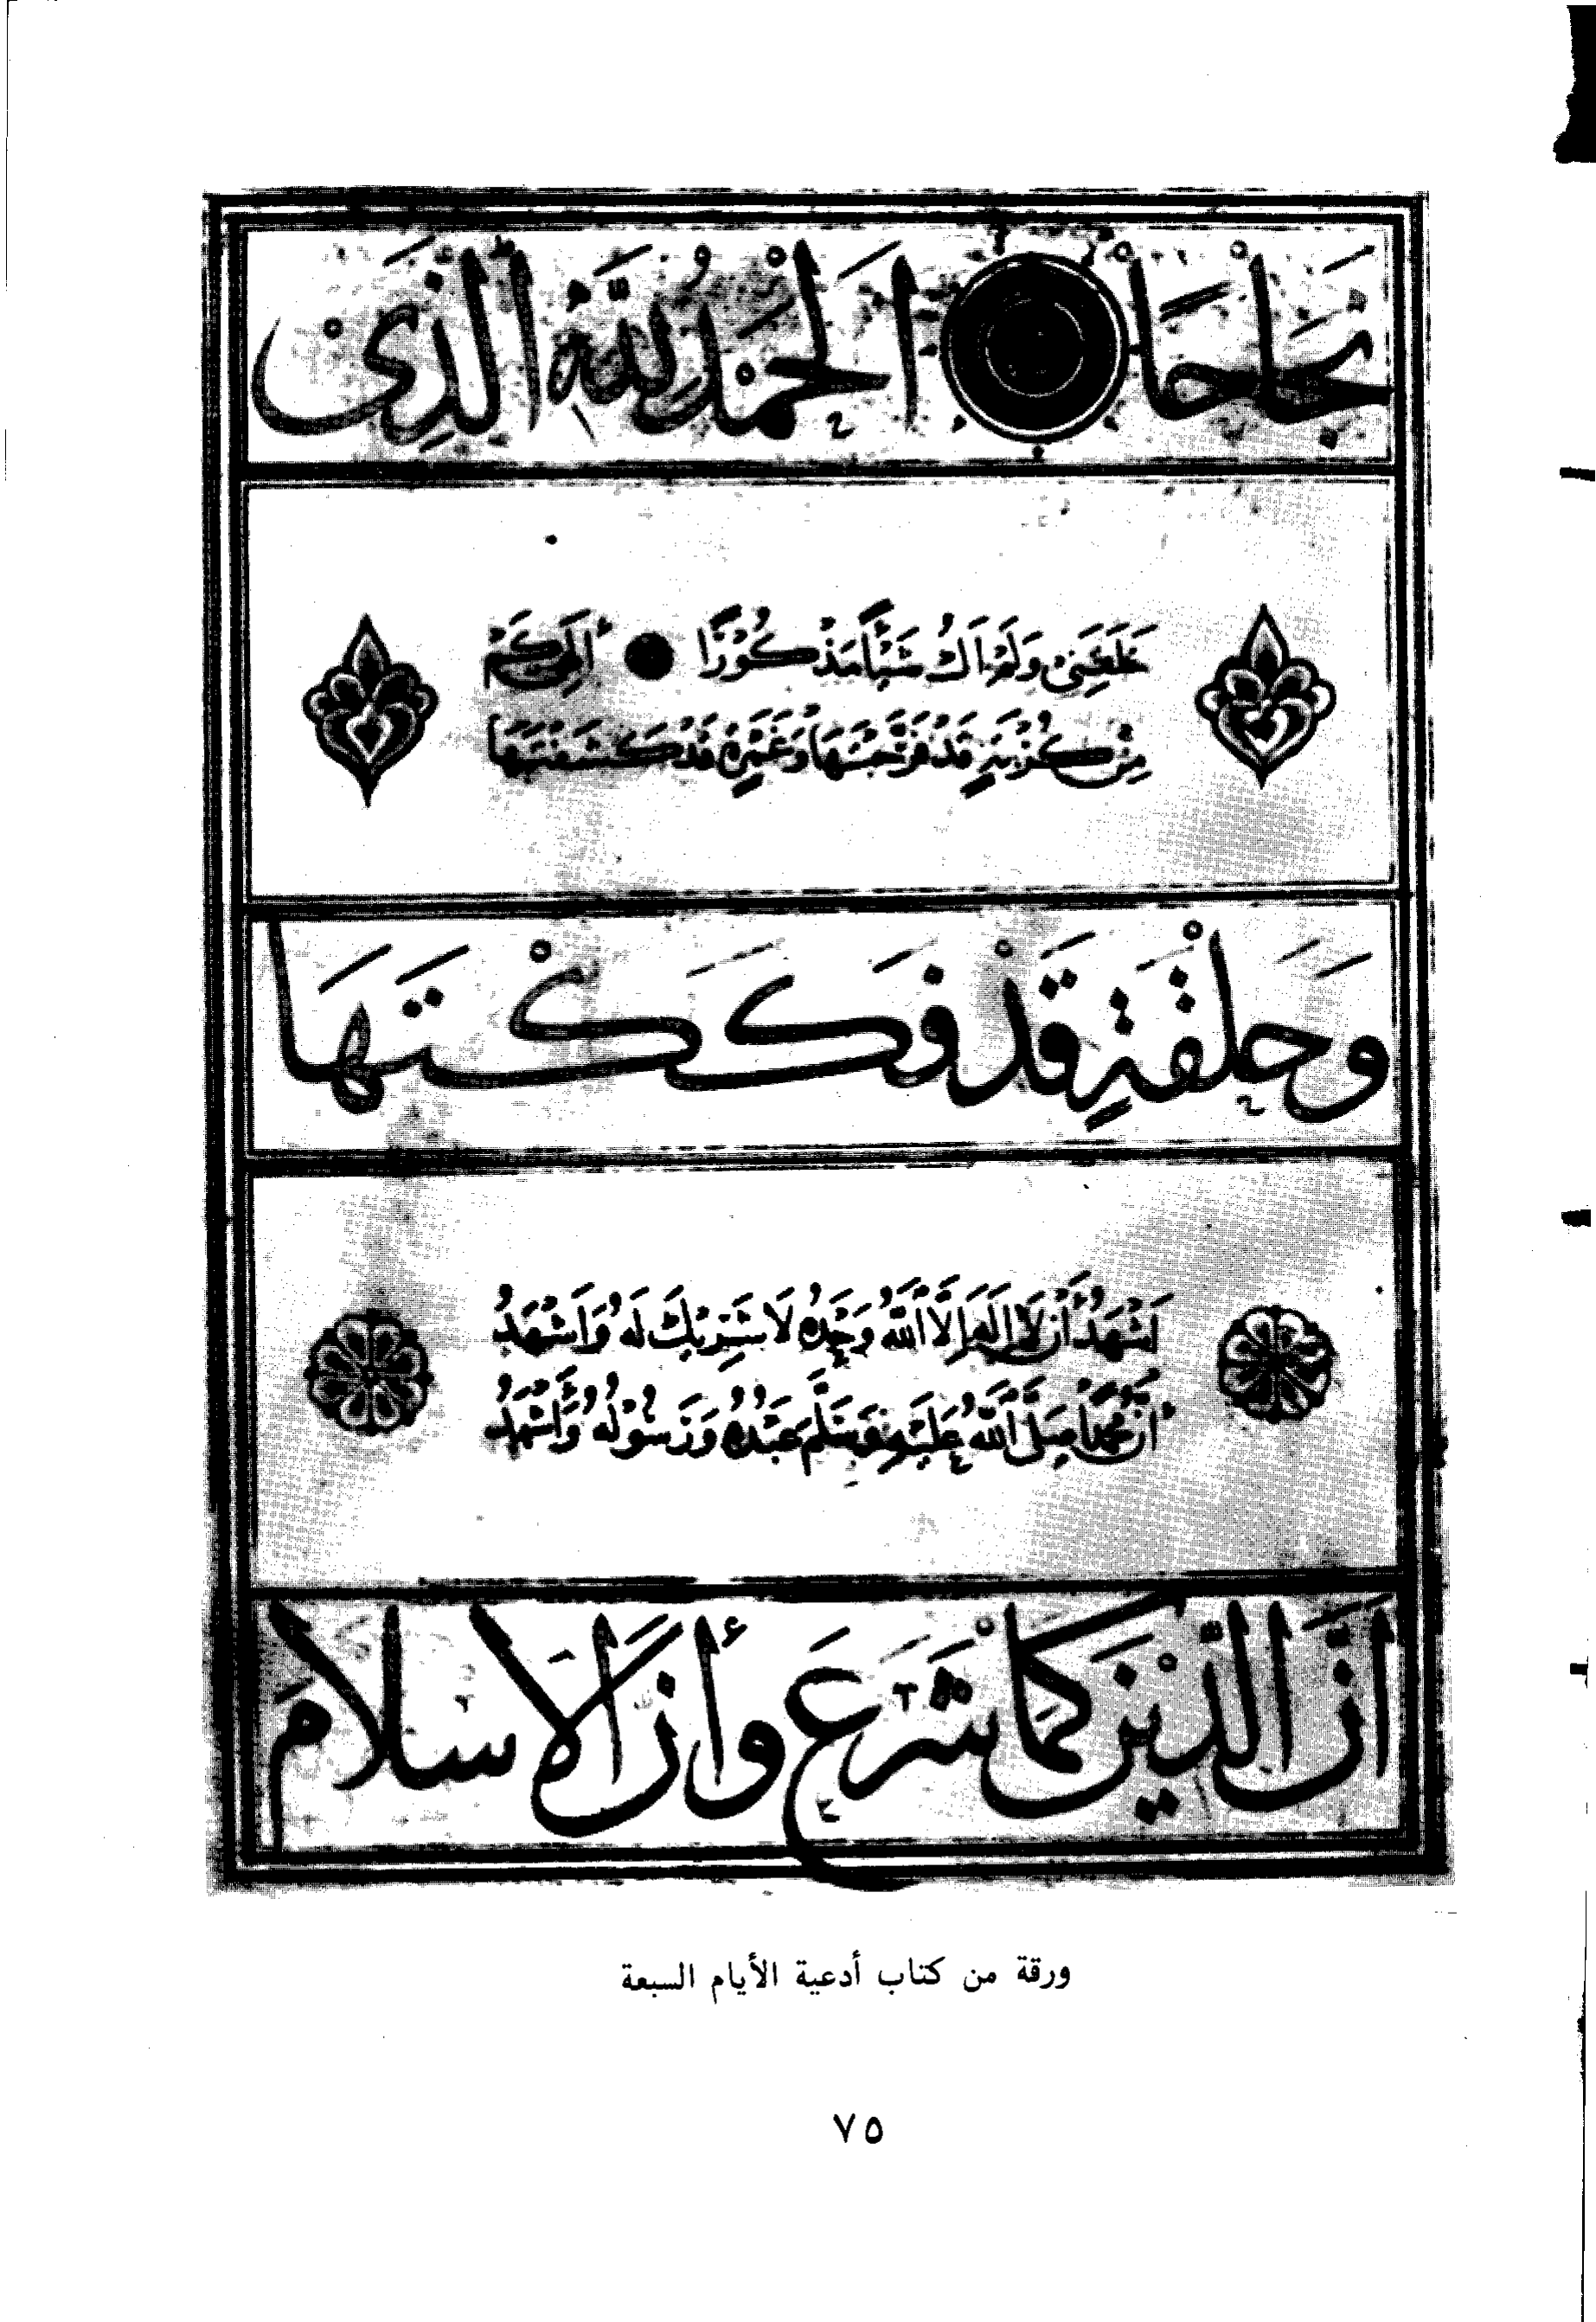 نَجَاحًا اَلْحَمْدُ لِلّٰهِ الَّذِى
خَلَقَنِى وَلَمْ اَكُ شَيْئًا مَذْكُوْرًا اِلٰهِى كَمْ
مِنْ كُرْبَةٍ قَدْ فَرَّجْتَهَا وَغَمْرَةٍ قَدْ كَشَفْتَهَا
وَحَلْقَةٍ قَدْ فَكَكْتَهَا
اَشْهَدُ أَنْ لَا إِلٰهَ إِلَّا اللّٰهُ وَحْدَهُ لَا شَرِيْكَ لَهُ وَاَشْهَدُ
أَنَّ مُحَمَّدًا صَلَّى اللّٰهُ عَلَيْهِ وَسَلَّمَ عَبْدُهُ وَرَسُوْلُهُ وَاَشْهَدُ
اَنَّ الدِّيْنَ كَمَا شَرَعَ وأَنَّ الْإِسْلَامَ
ورقة من كتاب أدعية الأيام السبعة
٧٥